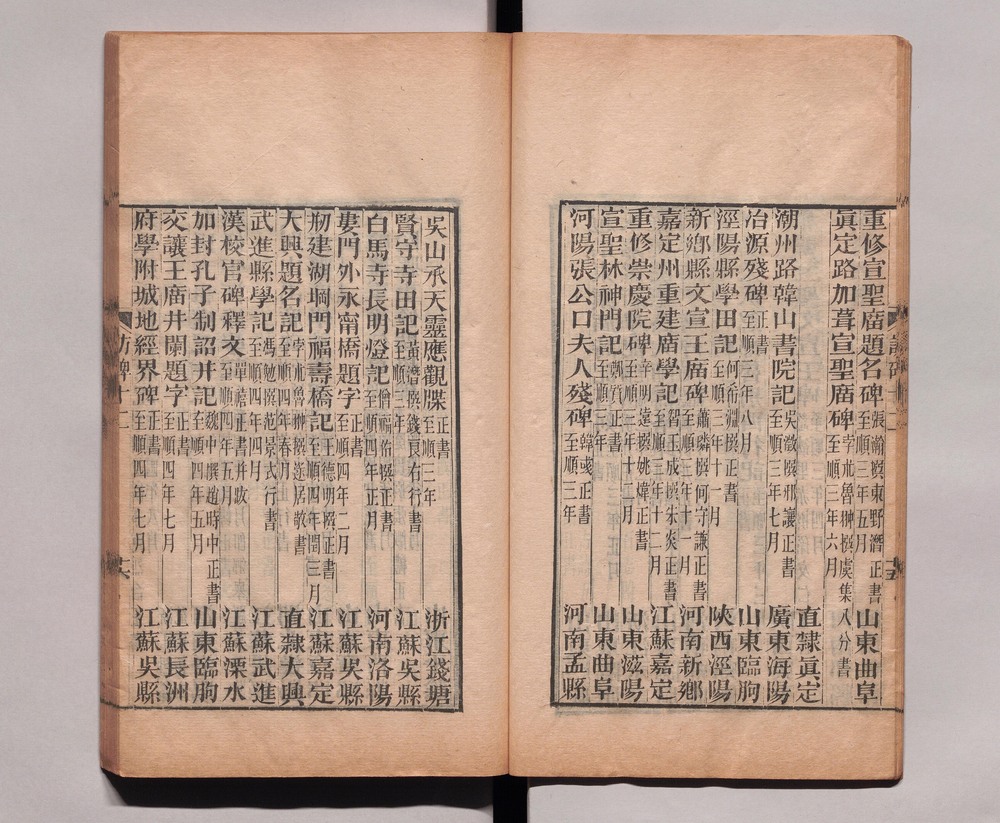 重修宣聖廟題名碑 張𩔰撰東野潛正書 至順三年五月 山東曲阜
眞定路加葺宣聖廟碑 孛朮魯翀撰虞集八分書 至順三年六月
直隸眞定
潮州路韓山書院記 吳澂撰邪讓正書 至順三年七月 廣東海陽
冶源殘碑 正書 至順三年八月 山東臨朐
涇陽縣學田記 何希淵撰正書 至順三年十一月 陝西涇陽
新鄉縣文宣王廟碑 蕭撰何守謙正書 至順三年十一月 河南新鄉
嘉定州重建廟學記 智玉成撰朱炎正書 至順三年十二月 江蘇嘉定
重修崇慶院碑 辛明遠撰姚煒正書 至順三年十二月 山東滋陽
宣聖林神門記 質正書 至順三年 山東曲阜
河陽張公口夫人殘碑 韓彧正書 至順三年 河南孟縣
吳山承天靈應觀牒 正書 至順三年 浙江錢塘
賢守寺田記 黃溍撰錢良右行書 至順三年 江蘇吳縣
白馬寺長明燈記 僧福佑撰正書 至順四年正月 河南洛陽
婁門外永甯橋題字 正書 至順四年二月 江蘇吳縣
剏建湖堈門福壽橋記 王德明撰正書 至順四年閏三月 江蘇嘉定
大興題名記 孛朮魯翀撰逯居敬書 至順四年春月 直隸大興
武進縣學記 馮勉撰范景式行書 至順四年四月 江蘇武進
漢校官碑釋文 單禧正書并跋 至順四年五月 江蘇溧水
加封孔子制詔并記 魏中撰趙時中正書 至順四年五月 山東臨朐
交讓王廟井闌題字 正書 至順四年七月 江蘇長洲
府學附城地經界碑 正書 至順四年七月 江蘇吳縣
訪碑十二 十六